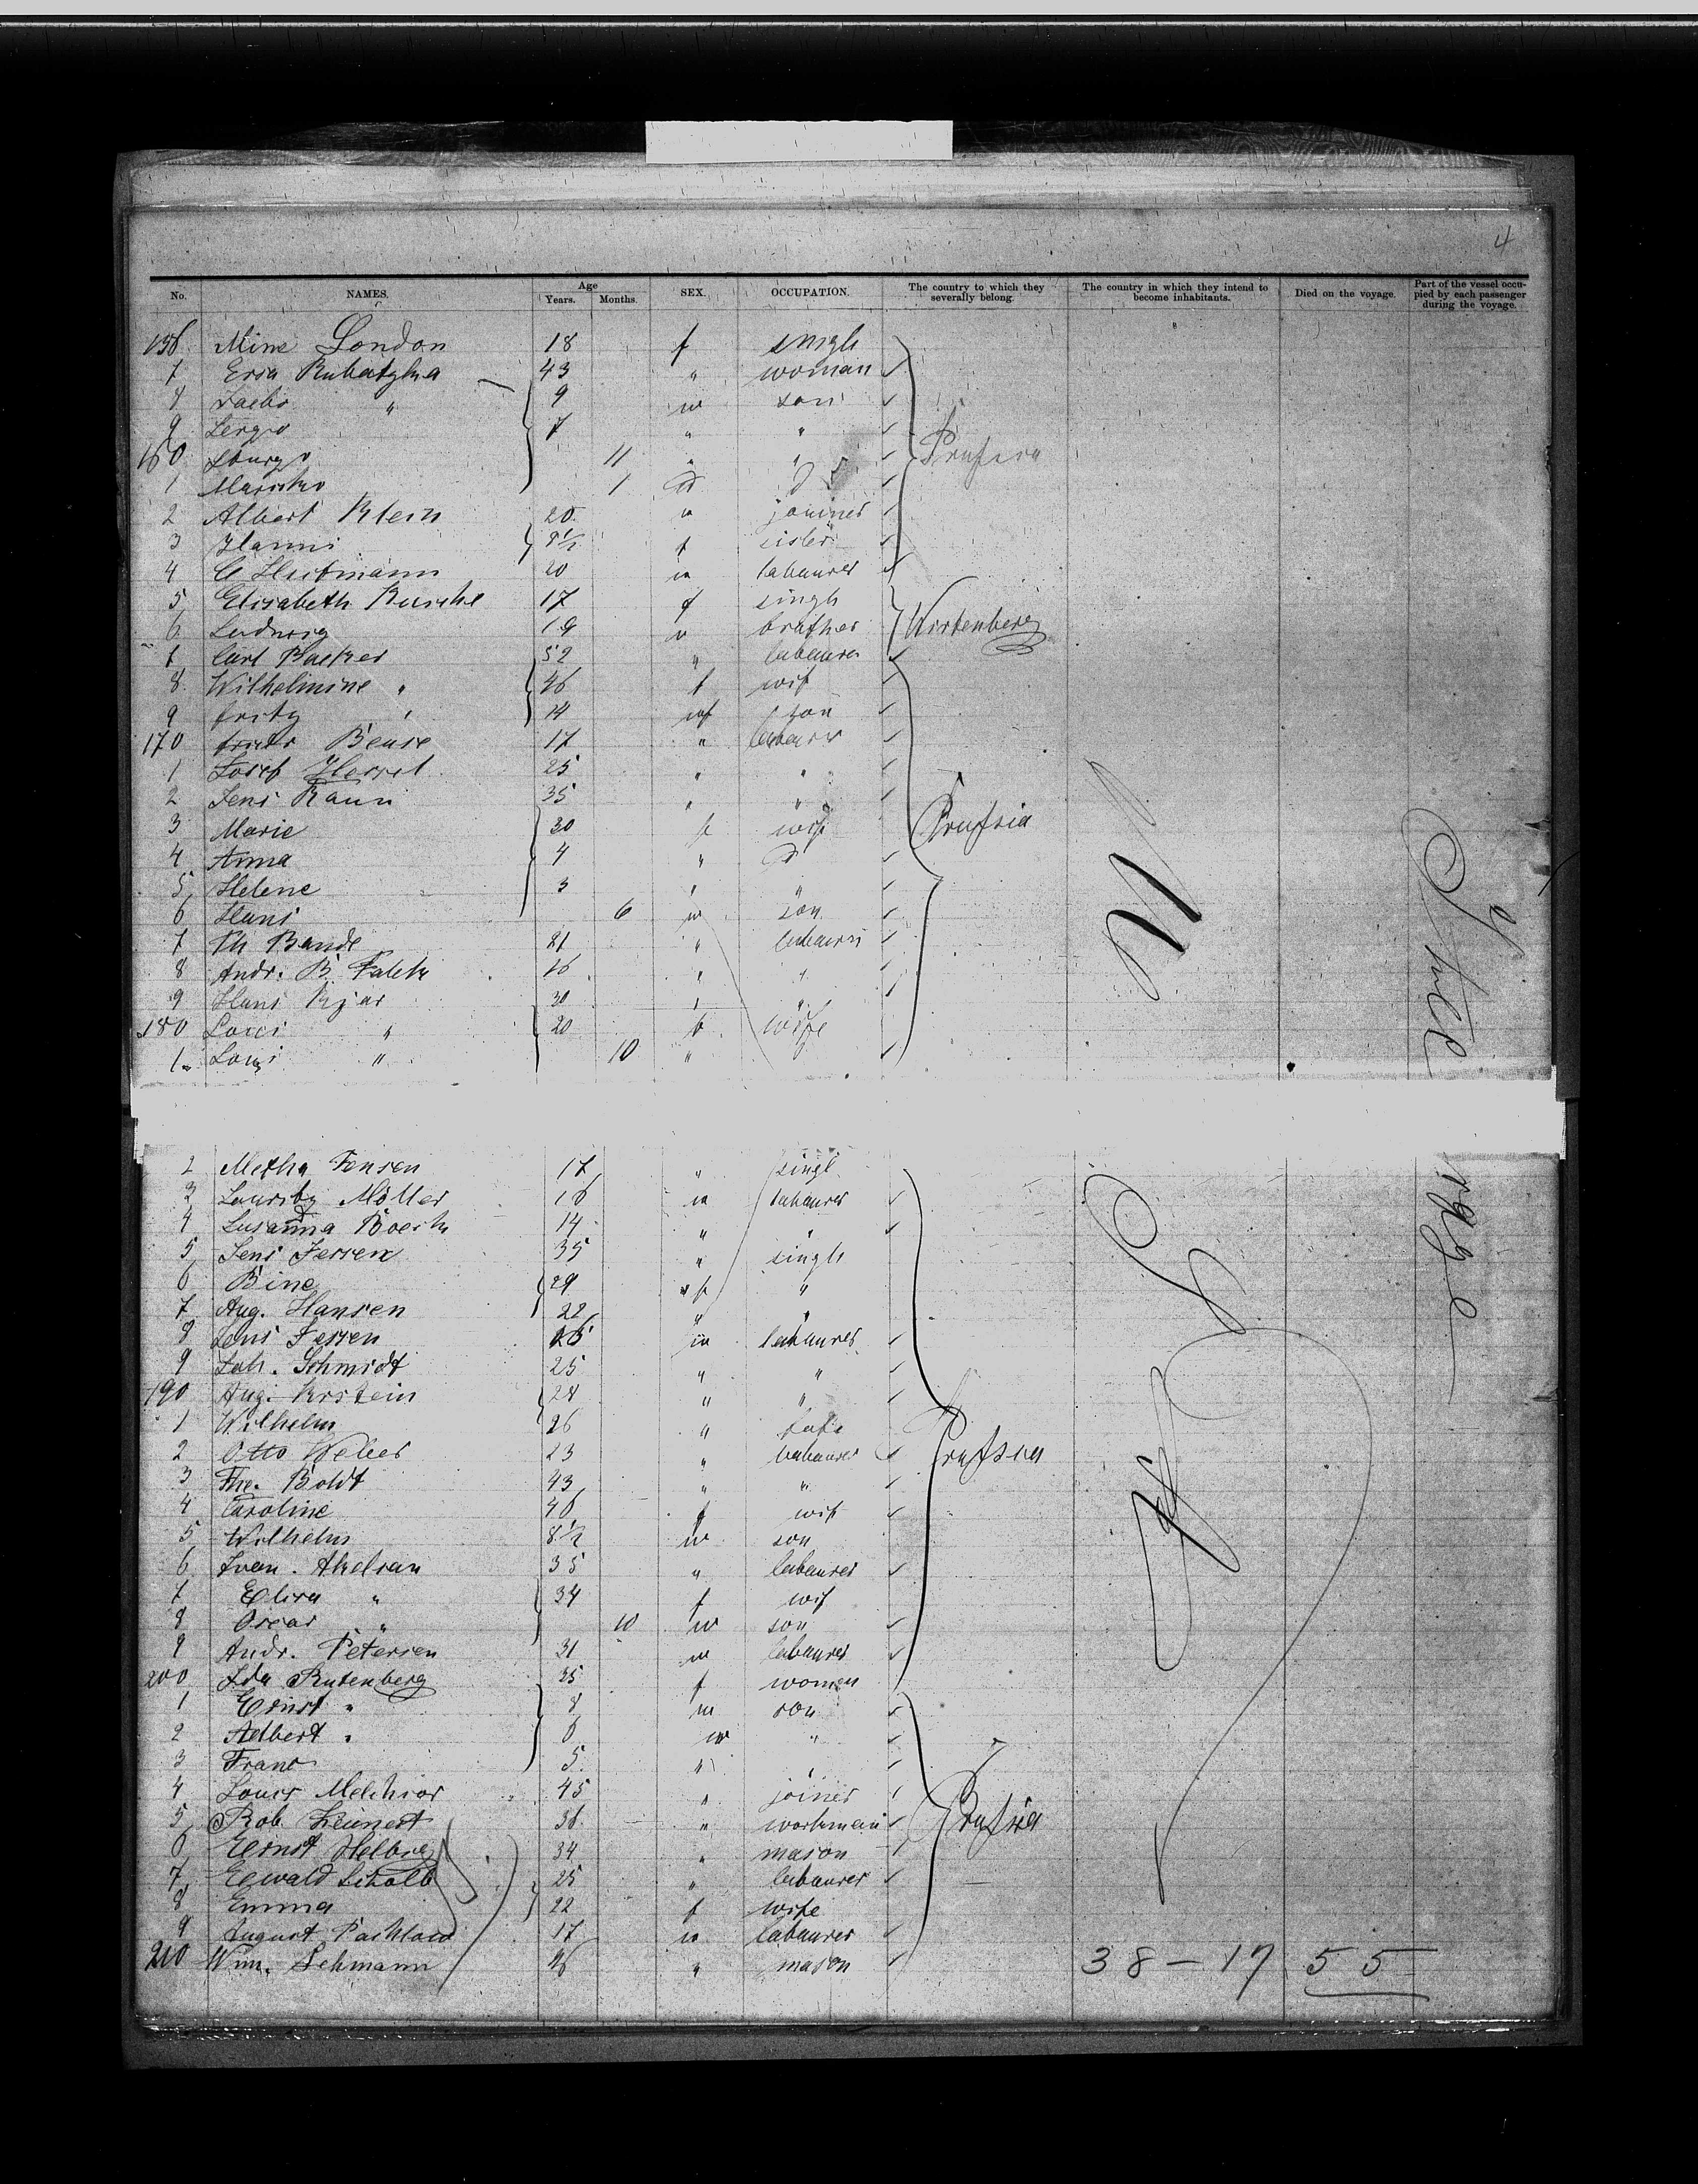 4
No. NAMES. Age Years. Months. SEX. OCCUPATION. The country to which they severally belong. The country in which they intend to become inhabitants. Died on the voyage. Part of the vessel occupied by each passenger during the voyage.
156 Mine London 18 f singh
7 Ersa 43 " woman
8 " 9 m son
9 Sergio 7 " "
160 11 " "
1 1
Prussia
2 Albert Klein 20 m joiner
3 Hanni 9½ f sister
4 20 m labaurer
5 Elisabeth Rusche 17 f singh
6 Ludwig 19 m brother
Wirtenberg
7 Carl Backer 52 " labaurer
8 Wilhelmine " 46 f wif
9 fritz " 14 m son
170 Beuse 17 " labaurer
1 Josef Hessel 25 " "
2 Jens Raun 35 " "
3 Marie 30 f wif
4 Anna 4 " d
Prussia
5 Helene 3 " "
6 Hans 6 m son
7 Th Bande 21 " labaurer
8 Andr. B. Falck 26 " "
9 Hans Kjar 30 " "
180 " 20 f wife
1 " 10 "
2 Metha Jensen 17 " singl
3 Möller 16 m labaurer
4 Susanna Boesch 14 " "
5 Jens Jessen 35 " singh
6 Bine 29 f "
7 Aug. Hansen 22 " "
8 Jens Jessen 26 m labaurer
9 Joh. Schmidt 25 " "
190 Aug. Kirstein 28 " "
1 Wilhelm 26 "
2 Otto Weber 23 " labaurer
Prussia
3 The. Boldt 43 " "
4 Caroline 46 f wif
5 Wilhelm 8½ m son
6 Sven. Akelsan 35 " labaurer
7 Elisa " 34 f wif
8 Oscar " 10 m son
9 Andr. Petersen 31 m labaurer
200 Ida Rutenberg 35 f women
1 Ernst " 8 m son
2 Adbert " 6 m "
3 Franc 5 " "
4 Louis Melchior 45 " joiner
5 Rob. Leinert 36 " workmein
Prussia
6 Ernst Helbig 34 " mason
7 Eewald Scholb 25 " labaurer
8 Emma 22 f wife
9 August Pachlow 17 m labaurer
210 Wm. Lehmann 26 " mason
U S of A
Steerage
38 – 17 55